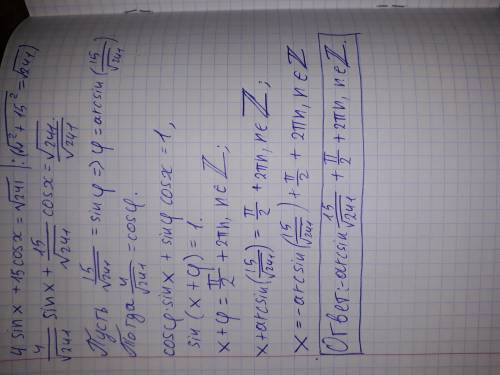 4 sin x + 15 cos x = √241 | : (√4² + 15² = √241)
4/√241 sin x + 15/√241 cos x = √241/√241
Пусть 15/√241 = sin φ => φ = arcsin (15/√241).
Тогда 4/√241 = cos φ.
cos φ · sin x + sin φ cos x = 1,
sin (x + φ) = 1.
x + φ = π/2 + 2πn, n ∈ ℤ;
x + arcsin(15/√241) = π/2 + 2πn, n ∈ ℤ;
x = -arcsin(15/√241) + π/2 + 2πn, n ∈ ℤ
Ответ: -arcsin 15/√241 + π/2 + 2πn, n ∈ ℤ.